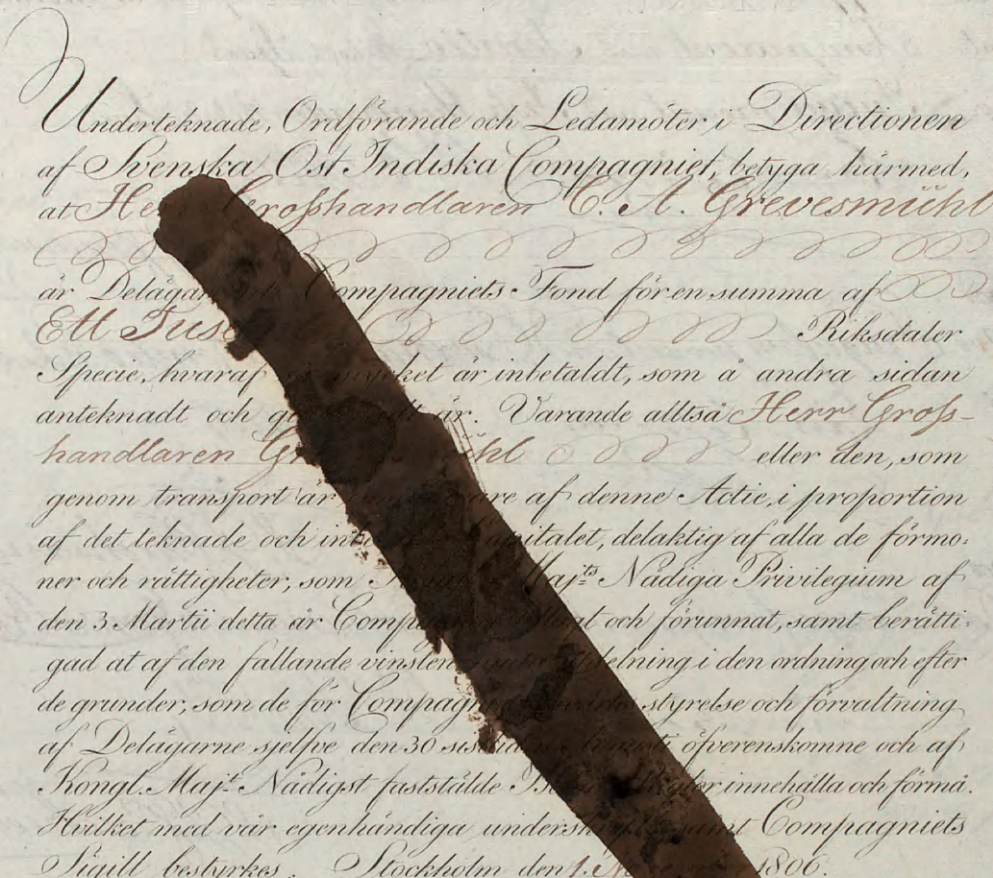 Underteknade, Ordförande och Ledamöter i Directionen
af Svenska Ost Indiska Compagniet, betyga härmed,
at Grosshandlaren C. A. Grevesmühl
är Compagniets Fond för en summa af
Ett Riksdaler
Specie, hvaraf är inbetaldt, som å andra sidan
anteknadt och är. Varande alltså Herr Gross-
handlaren eller den, som
genom transport är af denne Actie, i proportion
af det teknade och delaktig af alla de förmo-
ner och rättigheter, som Maj:ts Nådiga Privilegium af
den 3 Martii detta år och förunnat, samt berätti-
gad at af den fallande i den ordning och efter
de grunder, som de för styrelse och förvaltning
af Delägarne sjelfve den 30 öfverenskomne och af
Kongl. Maj:t Nådigst fastställde innehålla och förmå.
Hvilket med vår egenhändiga samt Compagniets
Sigill bestyrkes. Stockholm den 1 1806.